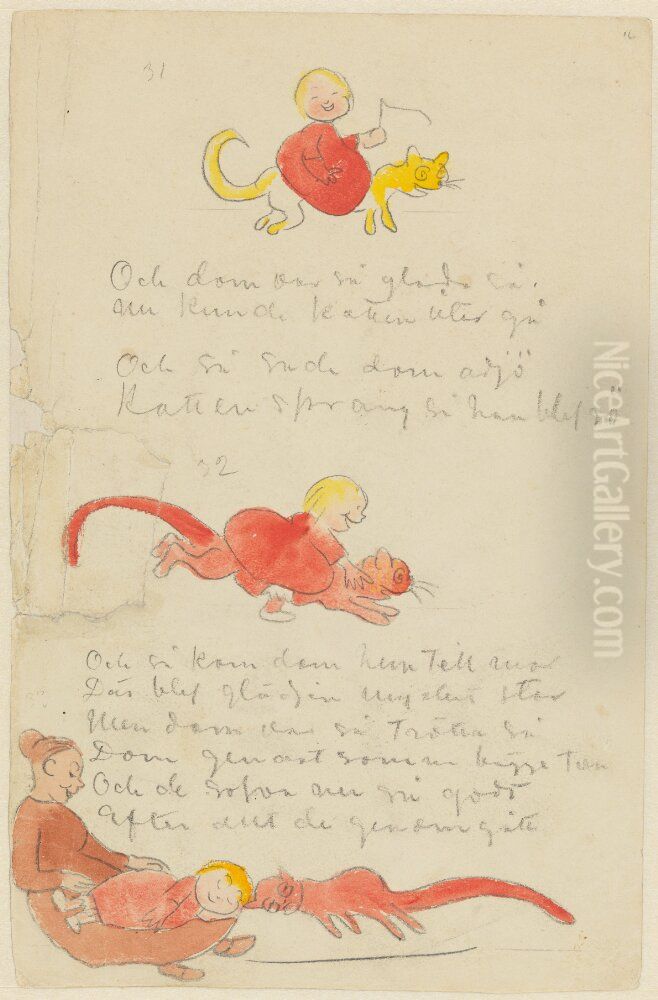 16
31
Och dom var så glada så.
nu kunde katten åter gå
Och så sade dom adjö
Katten sprang så han blef sö
32
Och så kom dom hem till mor
Där blef glädjen mycket stor
Men dom var så trötta så
Dom genast somna bägge två
Och de sofva nu så godt
Efter allt de genomgått
NiceArtGallery.com